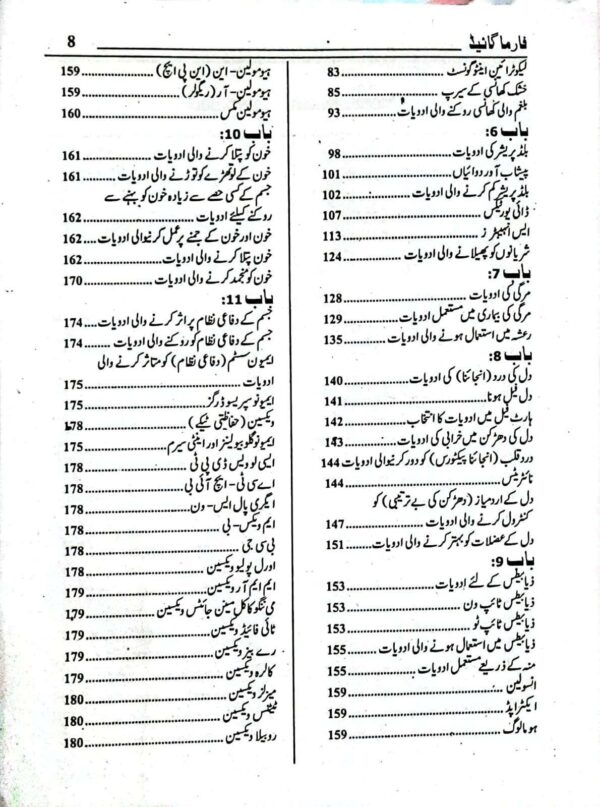 فارما گائیڈ 8
لیکوٹرائین اینٹوگونسٹ 83
خشک کھانسی کے سیرپ 85
بلغم والی کھانسی روکنے والی ادویات 93
باب 6:
بلڈ پریشر کی ادویات 98
پیشاب آور دوائیاں 101
بلڈ پریشر کم کرنے والی ادویات 102
ڈائی یورٹکس 107
ایس انہیبٹرز 113
شریانوں کو پھیلانے والی ادویات 124
باب 7:
مرگی کی ادویات 128
مرگی کی بیماری میں مستعمل ادویات 129
رعشہ میں استعمال ہونے والی ادویات 135
باب 8:
دل کی درد (انجائنا) کی ادویات 140
دل فیل ہونا 141
ہارٹ فیل میں ادویات کا انتخاب 142
دل کی دھڑکن میں خرابی کی ادویات 143
درد قلب (انجائنا پیکٹورس) کو دور کرنیوالی ادویات 144
نائٹریٹس 144
دل کے اردمیاز (دھڑکن کی بے ترتیبی) کو
کنٹرول کرنے والی ادویات 147
دل کے عضلات کو بہتر کرنے والی ادویات 151
باب 9:
ذیابیطس کے لئے ادویات 153
ذیابیطس ٹائپ ون 153
ذیابیطس ٹائپ ٹو 153
ذیابیطس میں استعمال ہونے والی ادویات 155
منہ کے ذریعے مستعمل ادویات 155
انسولین 159
ایکٹراپڈ 159
ہومالوگ 159
ہیومولین - این (این پی ایچ) 159
ہیومولین - آر (ریگولر) 159
ہیومولین مکس 160
باب 10:
خون کو پتلا کرنے والی ادویات 161
خون کے لوتھڑے کو توڑنے والی ادویات 161
جسم کے کسی حصے سے زیادہ خون کو بہنے سے
روکنے کیلئے ادویات 162
خون اور خون کے جمنے پر عمل کرنیوالی ادویات 162
خون پتلا کرنے والی ادویات 162
خون کو منجمد کرنے والی ادویات 170
باب 11:
جسم کے دفاعی نظام پر اثر کرنے والی ادویات 174
جسم کے دفاعی نظام کو روکنے والی ادویات 174
ایمیون سسٹم (دفاعی نظام) کو متاثر کرنے والی
ادویات 175
ایمیونو سپریسو ڈرگز 175
ویکسین (حفاظتی ٹیکے) 178
ایمیونو گلوبیولینز اور اینٹی سیرم 175
ایسی لو ویس ڈی پی ٹی 178
اے سی ٹی - ایچ آئی بی 178
ایگری پال ایس - ون 178
ایم ویکس - بی 178
بی سی جی 178
اورل پولیو ویکسین 178
ایم ایم آر ویکسین 179
می ننگو کاکل مینن جائٹس ویکسین 179
ٹائی فائیڈ ویکسین 179
رے بیز ویکسین 179
کالرہ ویکسین 179
میزلز ویکسین 180
ٹیٹنس ویکسین 180
روبیلا ویکسین 180